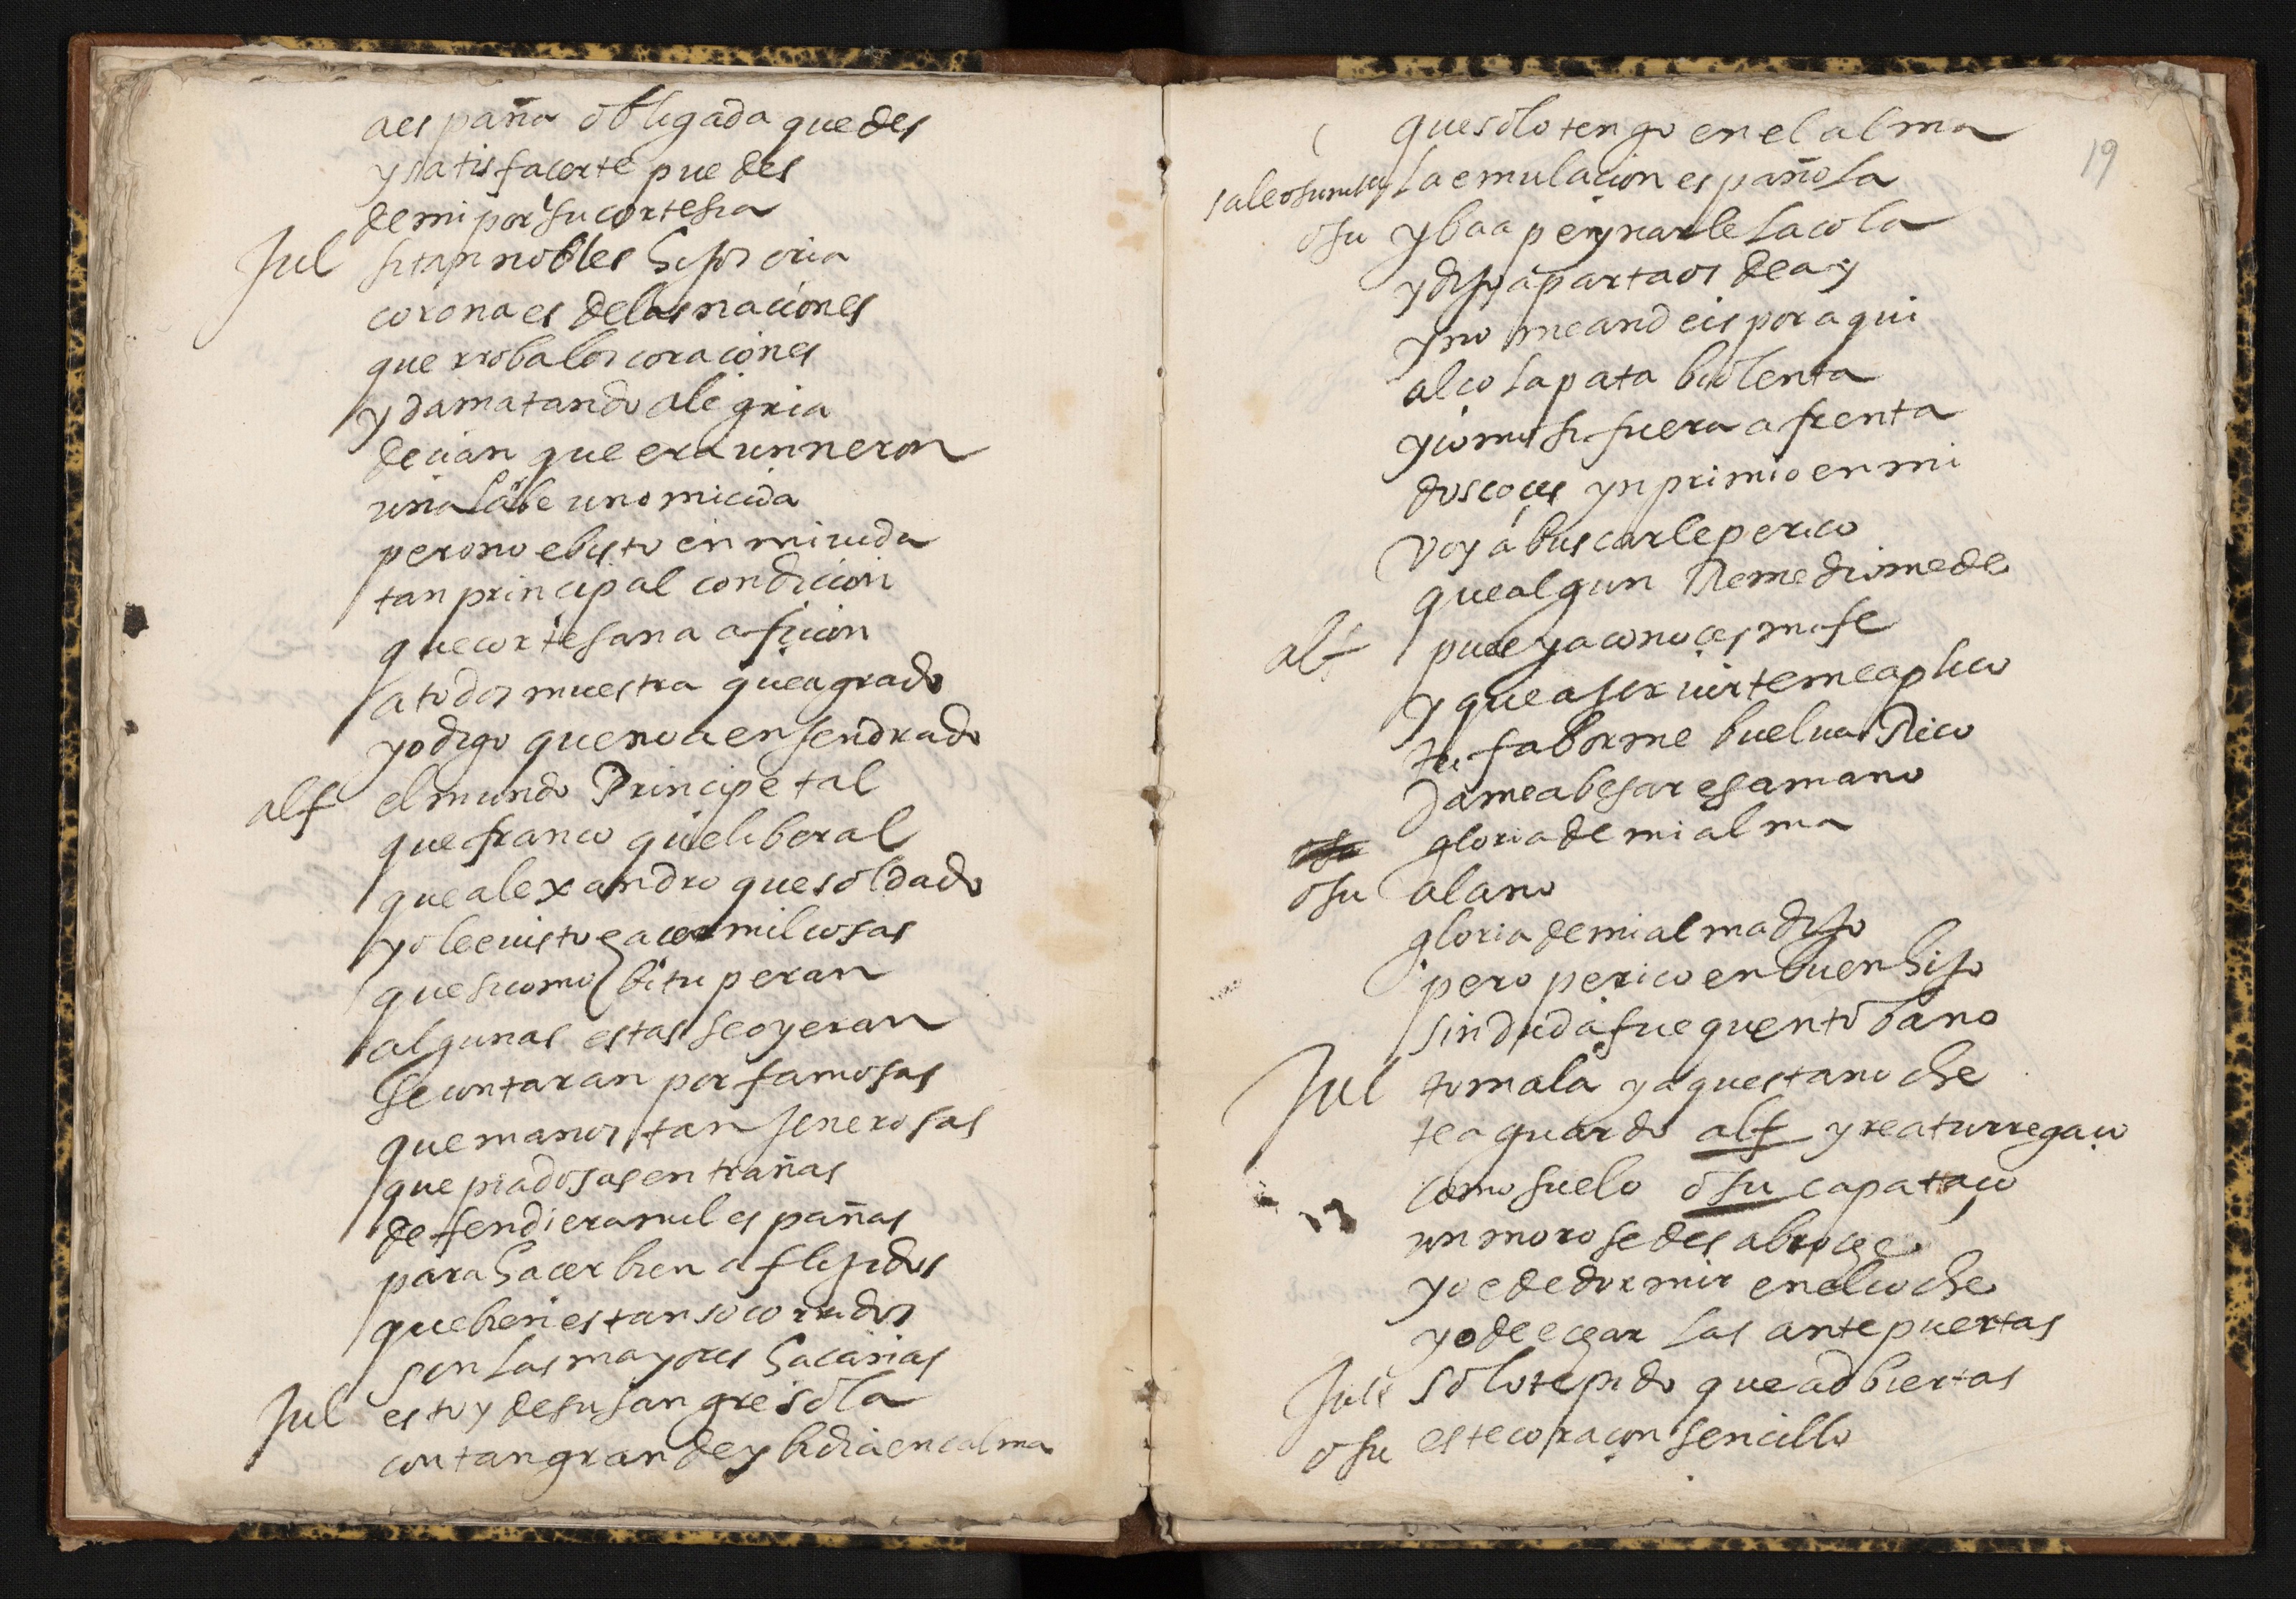 aespaña obligada quedes
y satisfacerte puedes
de mi por su cortesia
Jul si tan nobles hijos cria
corona es delas naciones
que rroba los coraçones
y da matando alegria
decian que era un neron
un alabe un omicida
pero no e bisto en mi uida
tan principal condicion
que cortesana aficion
a todos muestra que agrado
yo digo que no a enjendrado
alf el mundo Principe tal
que franco que liberal
que alexandro que soldado
yo le e uisto hacer mil cosas
que si como bituperan
algunas estas se oyeran
se contaran por famosas
que manos tan jenerosas
que piadosas entrañas
defendiera mil españas
para hacer bien aflijidos
que bien es tan socorridos
son las mayores hacañas
Jul estoy de su sangre sola
con tan grande ynbidia en calma
que solo tengo en el alma
19
sale osuni la emulacion española
osu yba a peynarle la cola
y dijo apartaos de ay
y no me andeis por aqui
alço la pata biolenta
y como si fuera afrenta
dos coçes ynprimio en mi
voy a buscarle perico
que algun Remedio me de
alf pues ya conoçes mi fe
y que a seruirte me aplico
tu fabor me buelua Rico
Dame a besar esa mano
gloria de mi alma
osu alano
gloria de mi alma dijo
pero perico en buen hijo
sin duda fue quento bano
Jul tomala ya questa noche
te aguardo alf yre a tu rregaço
como suelo osu capataço
un moro se desabroche
yo e de dormir en el coche
yo de echar las antepuertas
Jul solo te pido que adbiertas
osu este coraçon sencillo